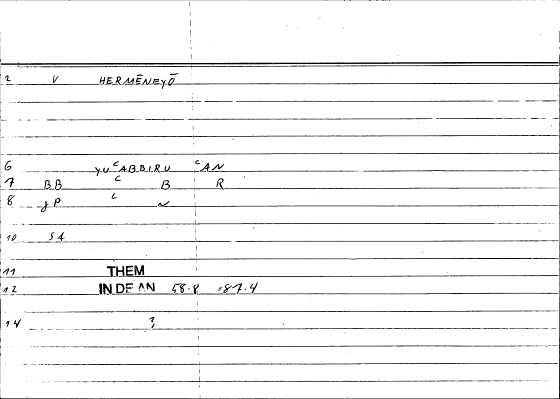 2 V HERMĒNEYŌ
6 YUᶜABBIRU ᶜAN
7 BB ᶜ B R
8 JP ᶜ N
10 SA
11 THEM
12 INDEAN 58.8 :87.4
14 ?